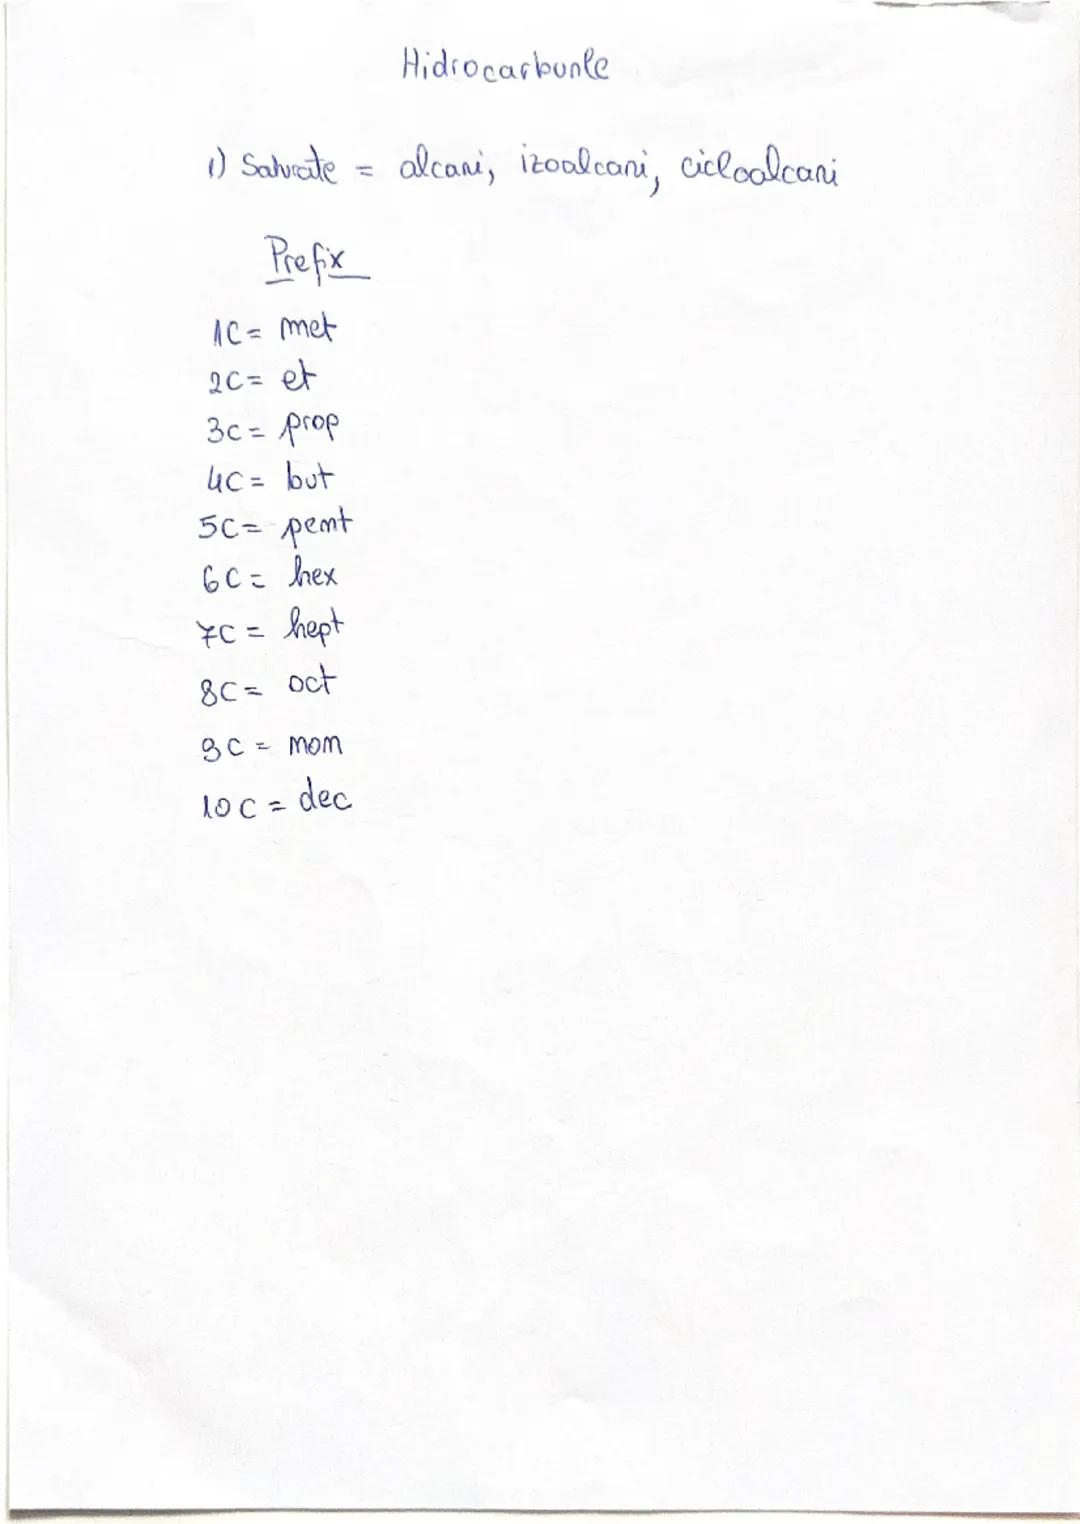 Hidrocarburile
1) Saturate = alcani, izoalcani, cicloalcani
Prefix
1C = met
2C = et
3C = prop
4C = but
5C = pent
6C = hex
7C = hept
8C = oct
9C = non
10C = dec